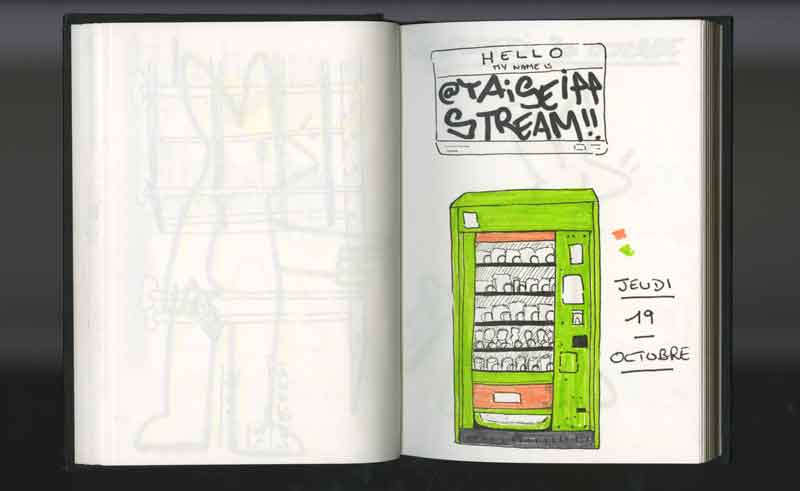 HELLO
MY NAME IS
@TAiSEiPP
STREAM!!
JEUDI
19
OCTOBRE